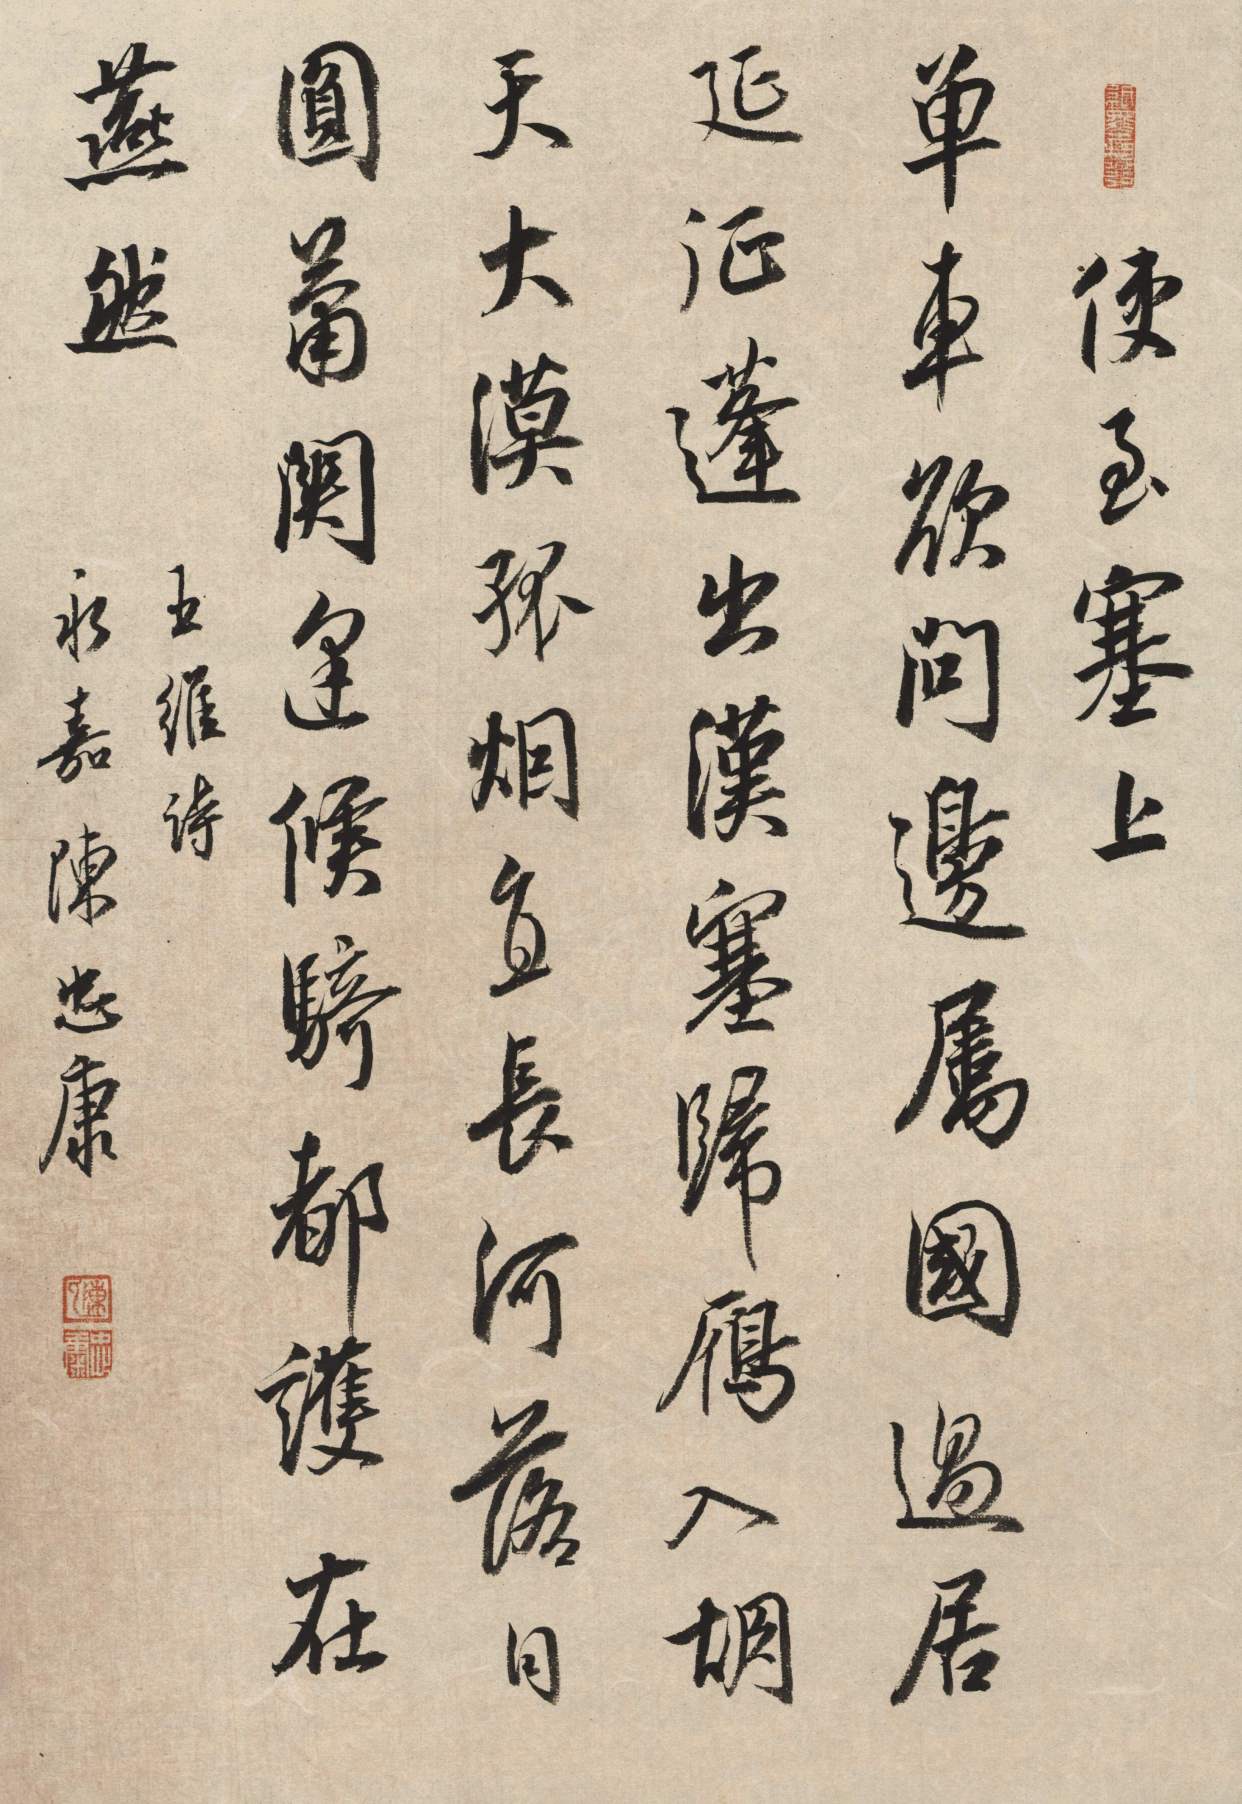 使至塞上
单車欲問邊屬國過居
延征蓬出漢塞歸雁入胡
天大漠孤烟直長河落日
圓蕭關逢候騎都護在
燕然
王維詩
永嘉陳忠康